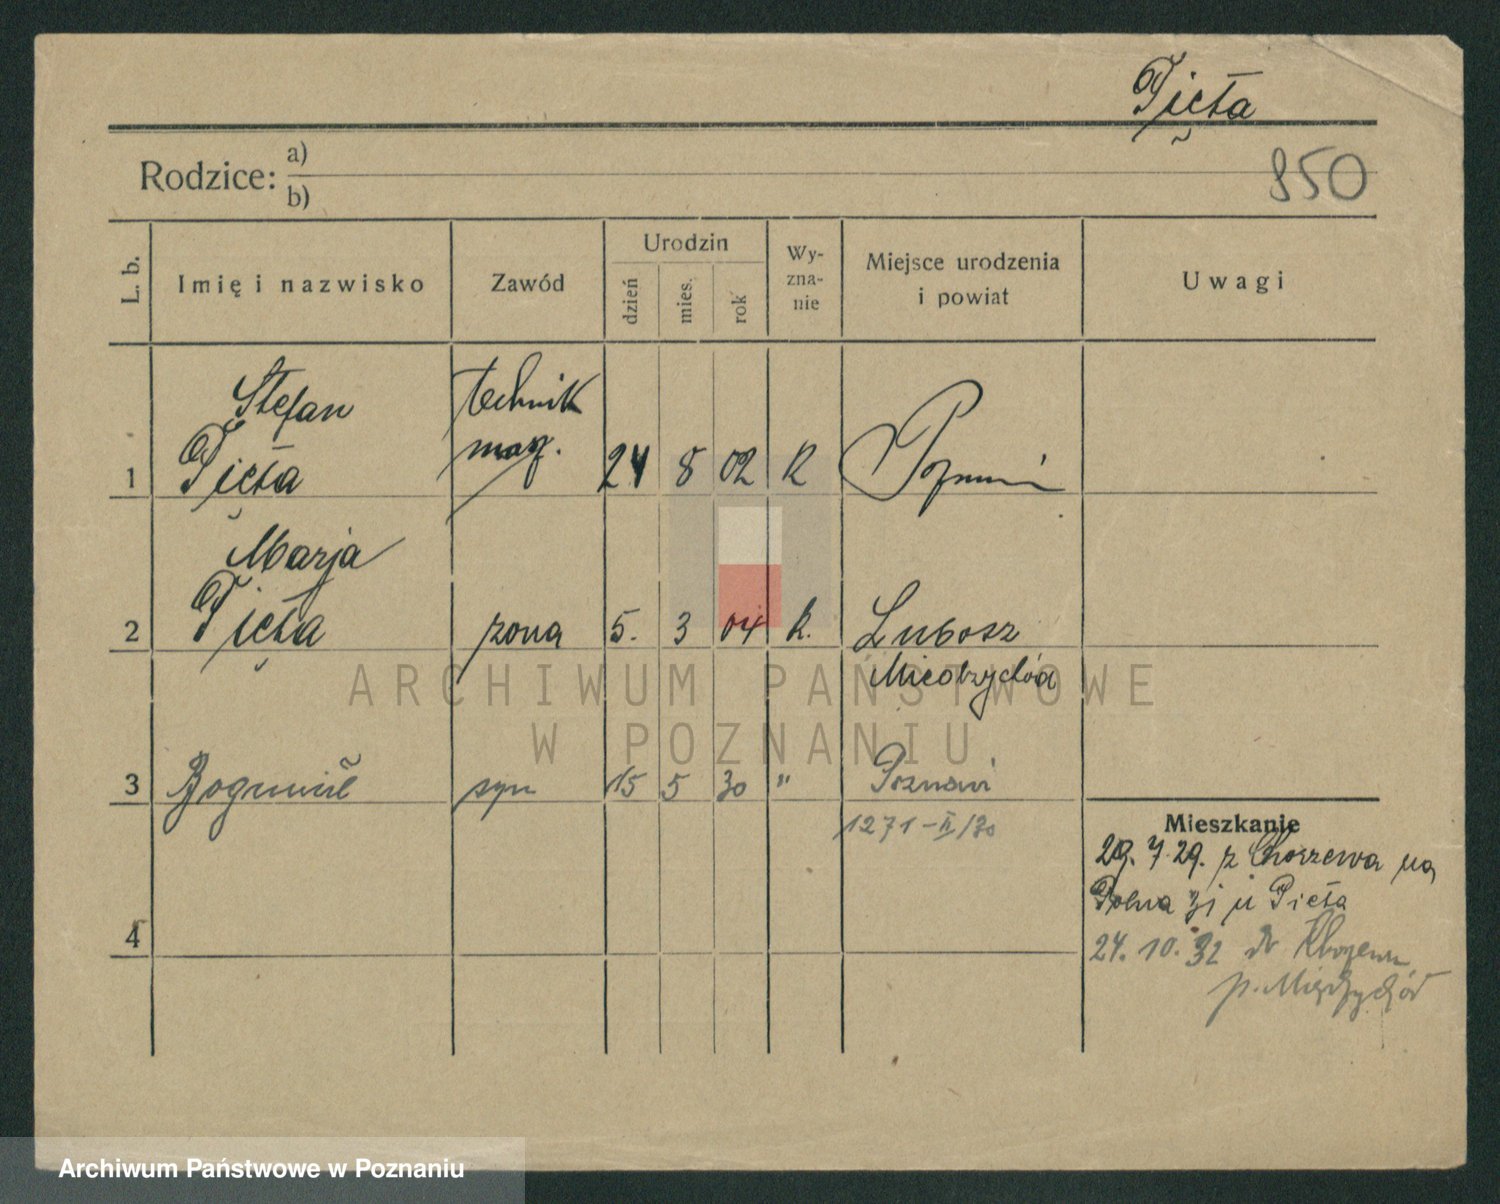 Pięta
Rodzice: a)
b)
850
L. b.
Imię i nazwisko
Zawód
Urodzin
dzień
mies.
rok
Wy-
zna-
nie
Miejsce urodzenia
i powiat
Uwagi
Stefan
technik
1 Pięta 24 8 02 R
Marja
2 Pięta żona 5. 3 04 R. Lubosz
ARCHIWUM PAŃSTWOWE
W POZNANIU
3 Bogumił syn 15 5 30 " Poznań
1271-II/30
Mieszkanie
29. 7. 29. z na
Polna 31 u Pięta
4
24. 10. 32
p. Międzychód
Archiwum Państwowe w Poznaniu